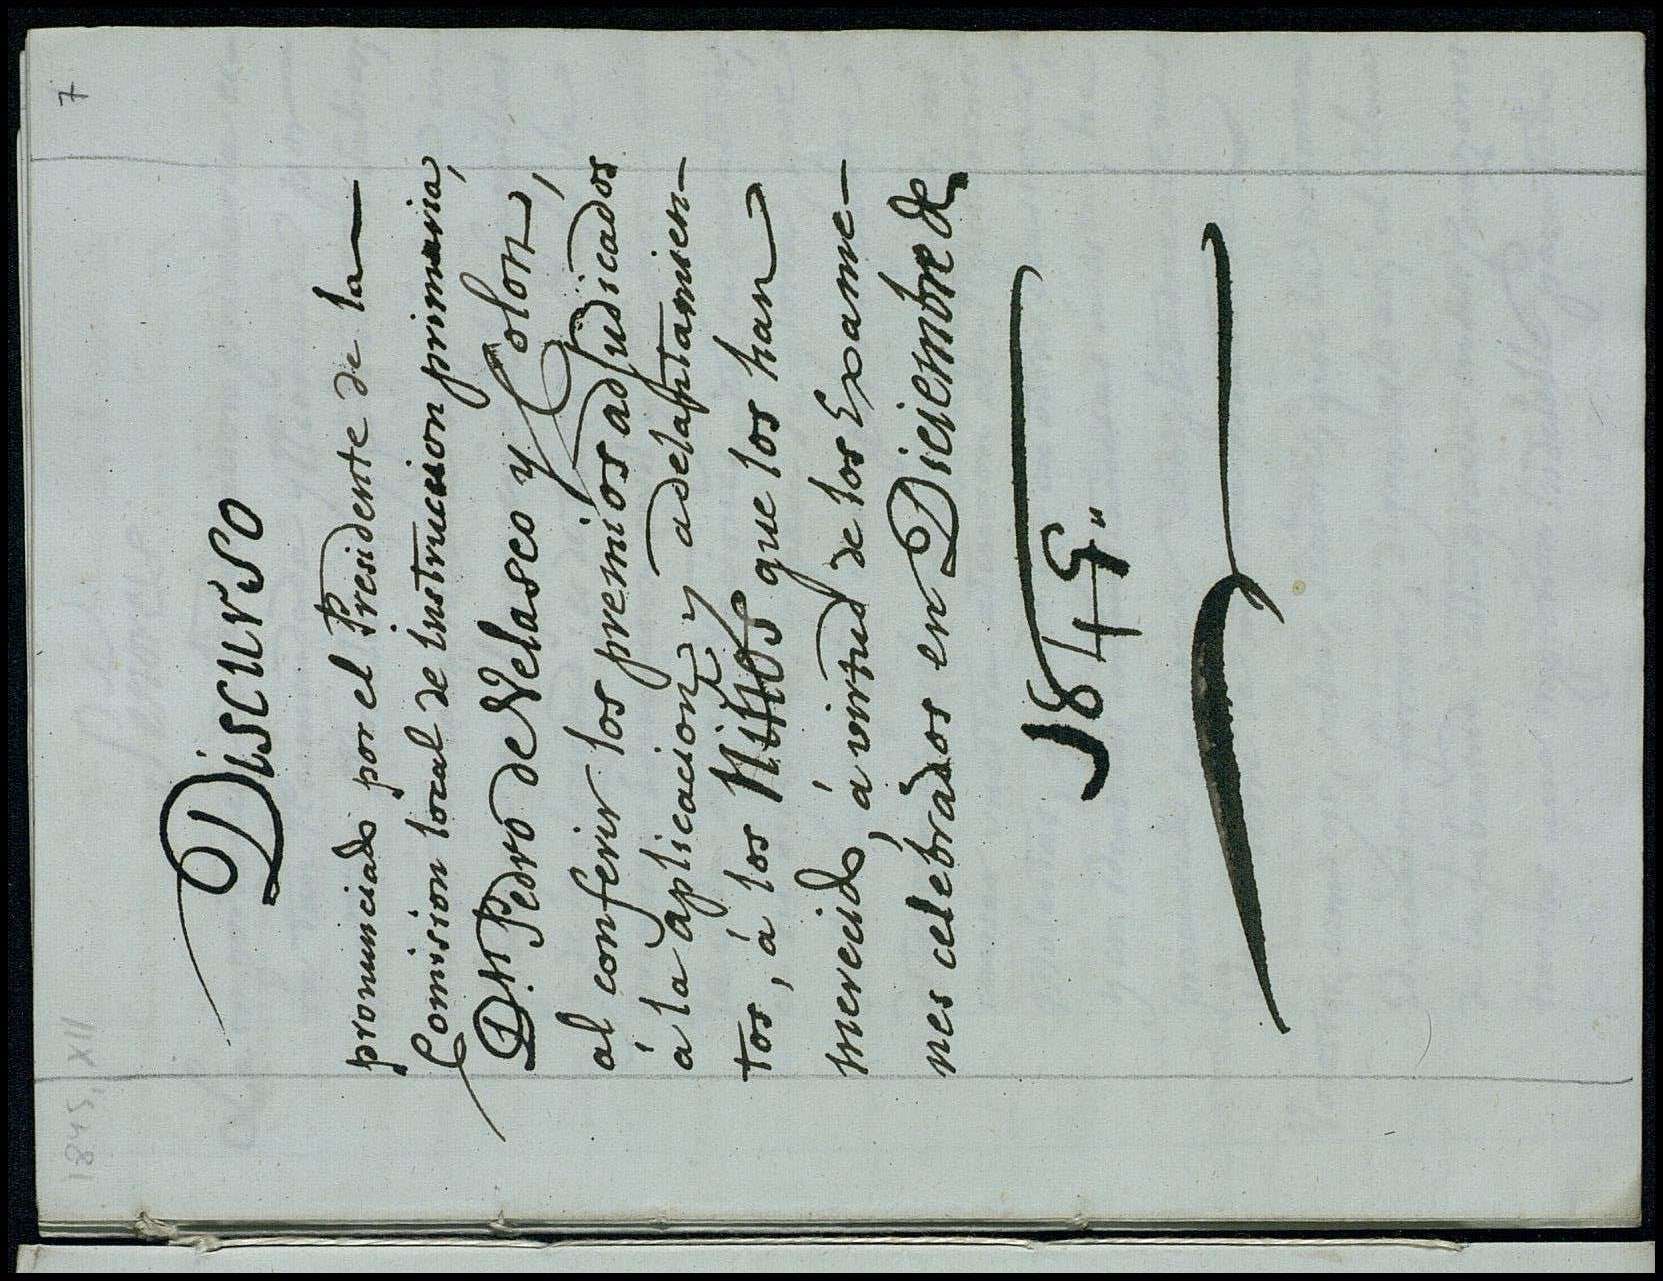 7
1845 XII
Discurso
pronunciado por el Presidente de la
Comision local de instruccion primaria,
Dn Pedro de Velasco y Colon,
al conferir los premios adjudicados
á la aplicacion y adelantamien-
tos, á los Niños que los han
merecido, á virtud de los Exame-
nes celebrados en Diciembre de
1845"